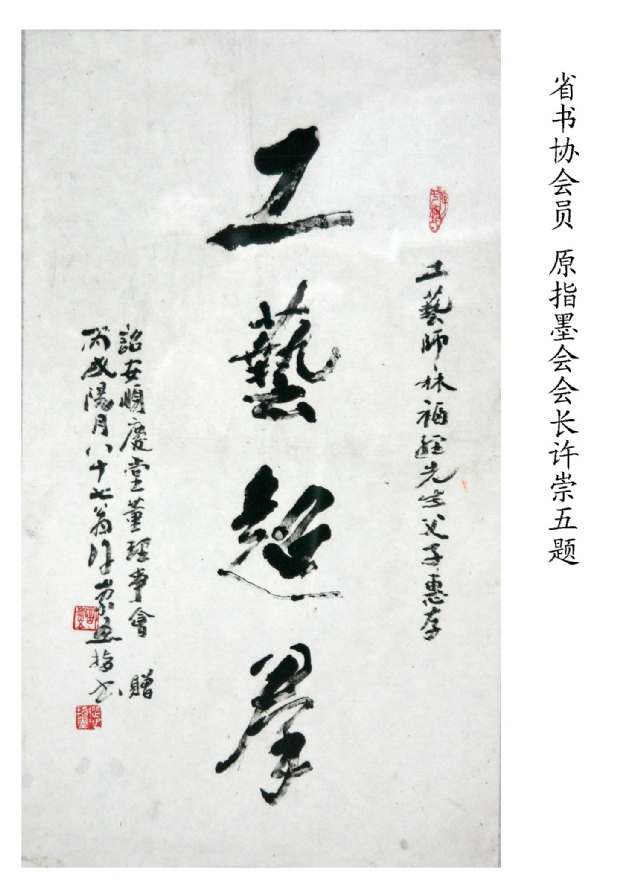 省书协会员 原指墨会会长许崇五题
工藝師林福先生父子惠存
工藝超羣
詔安順慶堂董事會 贈
丙戌陽月八十七翁許崇指書